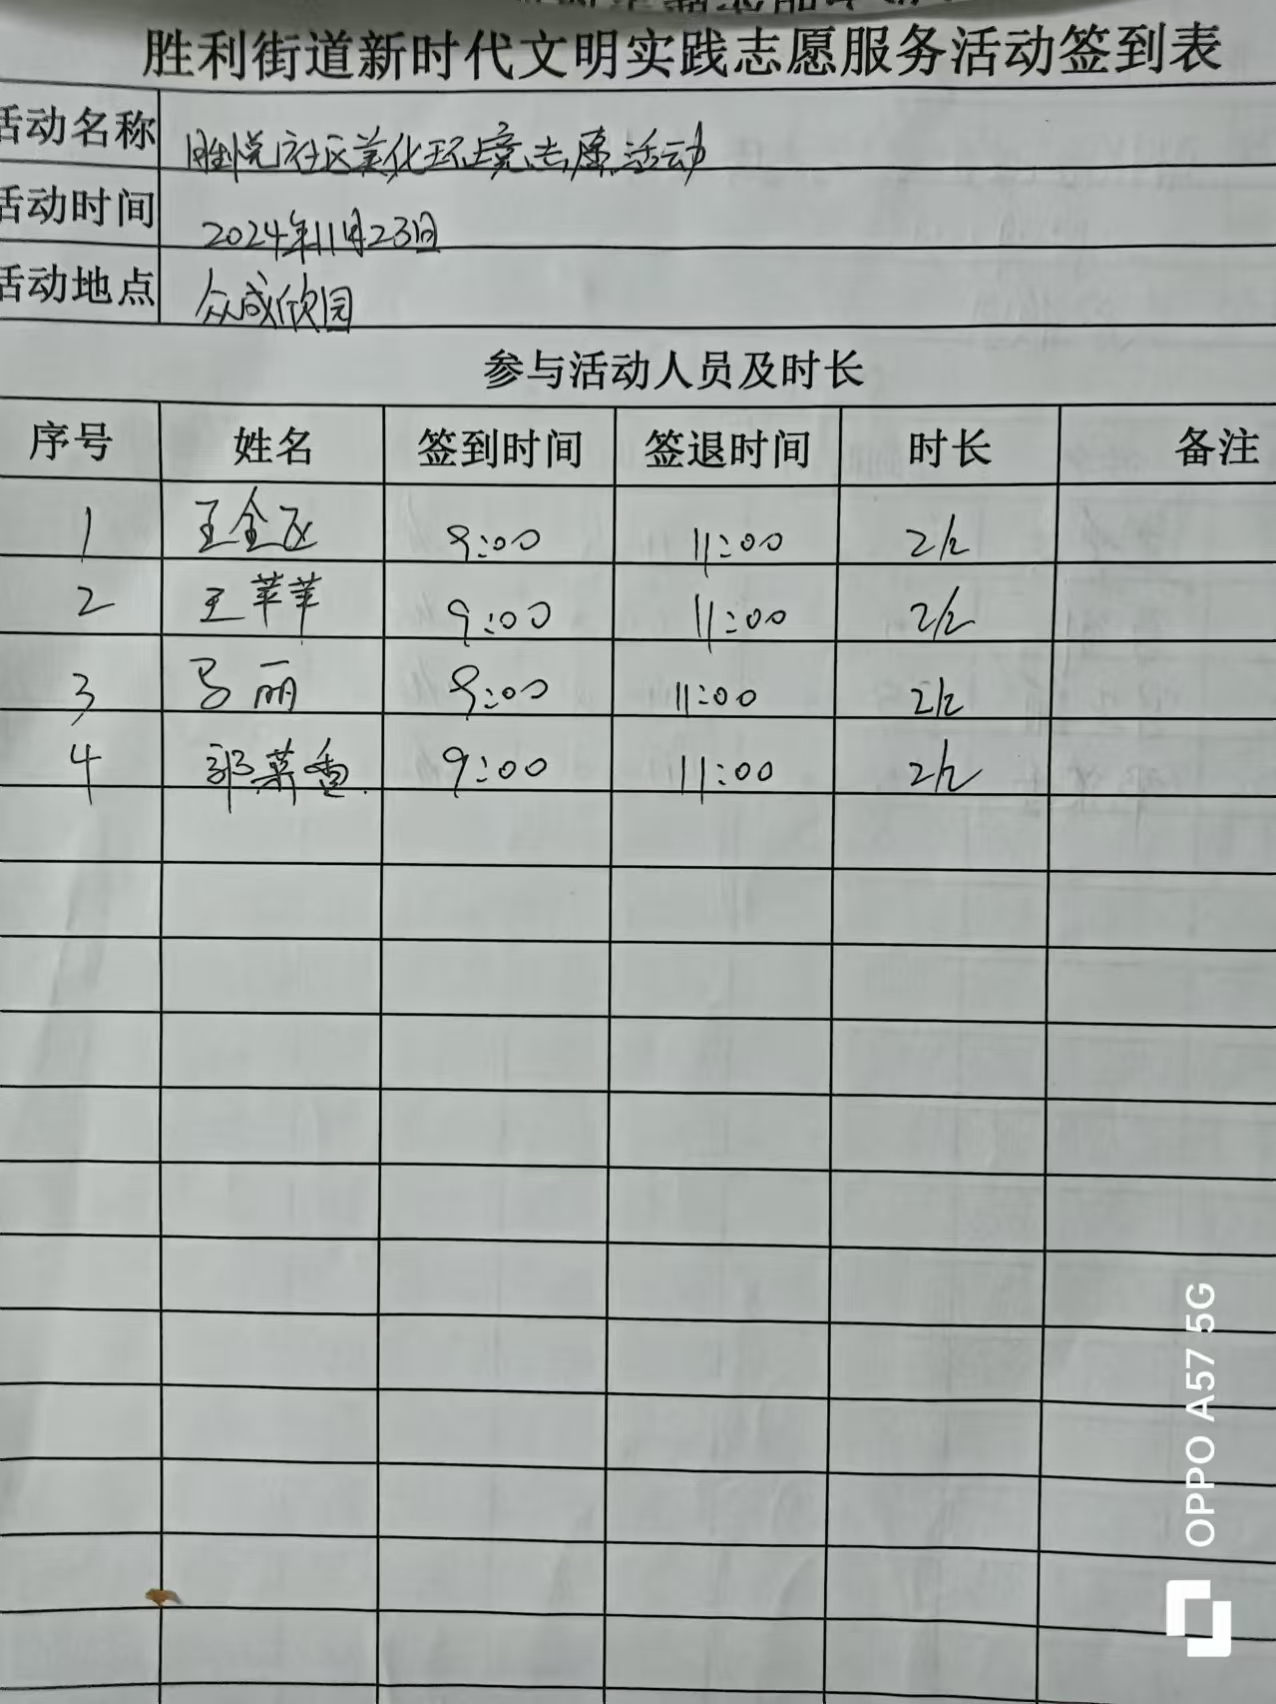 胜利街道新时代文明实践志愿服务活动签到表
活动名称 胜悦社区美化环境志愿活动
活动时间 2024年11月23日
活动地点 众成欣园
参与活动人员及时长
序号 姓名 签到时间 签退时间 时长 备注
1 王全 9:00 11:00 2h
2 王苹苹 9:00 11:00 2h
3 马丽 9:00 11:00 2h
4 郭菊香 9:00 11:00 2h
OPPO A57 5G